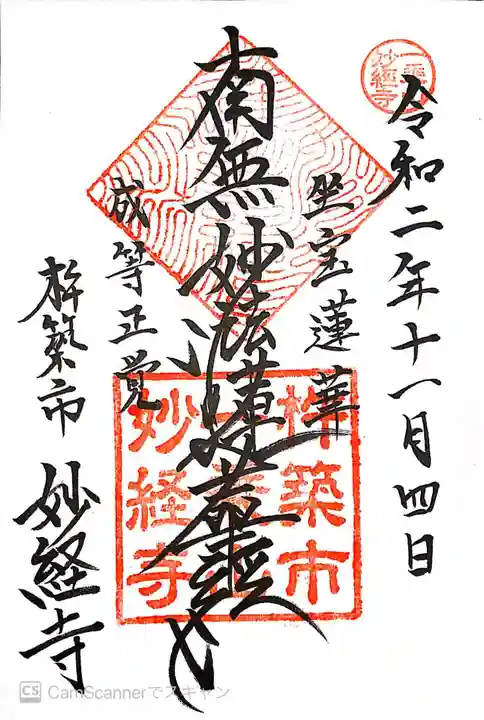 令和二年十一月四日
坐宝蓮華
南無妙法蓮華経
成等正覚
杵築市 妙経寺
妙経寺
杵築市
妙経寺
CS CamScannerでスキャン